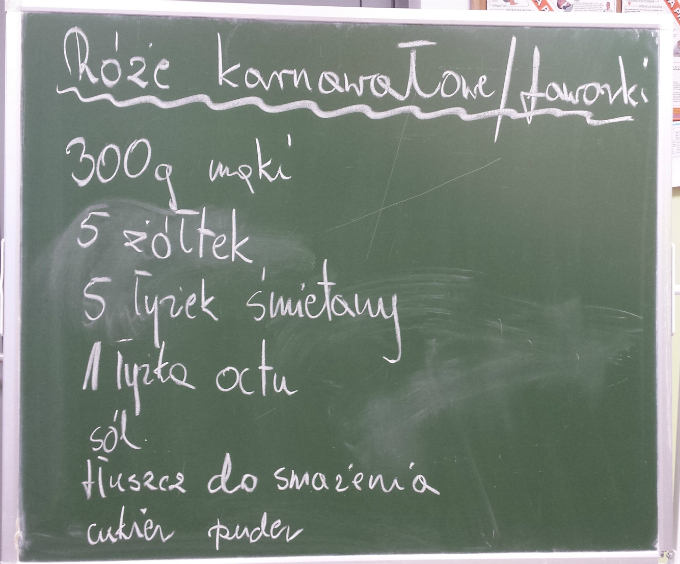 Róże karnawałowe/faworki
300g mąki
5 żółtek
5 łyżek śmietany
1 łyżka octu
sól
tłuszcz do smażenia
cukier puder